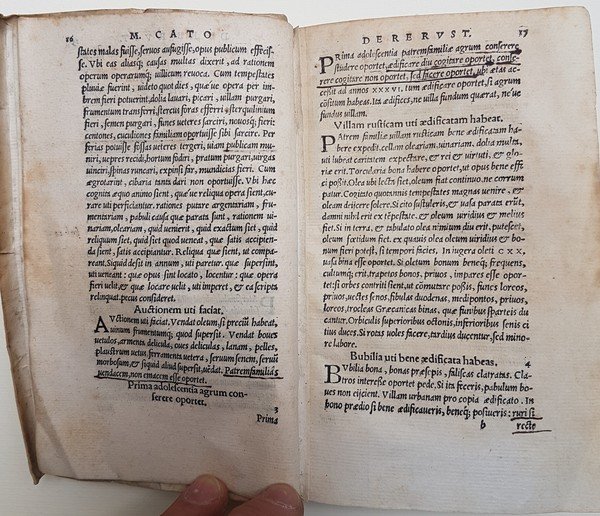 16
M. CATO
states malas fuisse, seruos aufugisse, opus publicum effecis-
se. Vbi eas aliasq; causas multas dixerit, ad rationem
operum operarumq; uillicum reuoca. Cum tempestates
pluuiæ fuerint, uideto quot dies, quæ ue opera per im-
brem fieri potuerint, dolia lauari, picari, uillam purgari,
frumentum transferri, stercus foras efferri, sterquilinium
fieri, semen purgari, funes ueteres sarciri, nouosq; fieri:
centones, cuculiones familiam oportuisse sibi sarcire. Per
ferias potuisse fossas ueteres tergeri, uiam publicam mu-
niri, uepres recidi, hortum fodiri, pratum purgari, uirgas
uinciri, spinas runcari, expinsi far, mundicias fieri. Cum
ægrotarint, cibaria tanta dari non oportuisse. Vbi hæc
cognita æquo animo sient, quæ ue reliqua opera sient, cu-
rare uti perficiantur. rationes putare argentariam, fru-
mentariam, pabuli causa quæ parata sunt, rationem ui-
nariam, oleariam, quid uenierit, quid exactum siet, quid
reliquum siet, quid siet quod ueneat, quæ satis accipien-
da sient, satis accipiantur. Reliqua quæ sient, ut compa-
reant. Siquid desit in annum, uti paretur. quæ supersint,
uti ueneant: quæ opus sint locato, locentur: quæ opera
fieri uelit, & quæ locare uelit, uti imperet, & ea scripta
relinquat. pecus consideret.
Auctionem uti faciat.
AVctionem uti faciat. Vendat oleum, si preciũ habeat,
uinum frumentumq; quod supersit. Vendat boues
uetulos, armenta delicula, oues deliculas, lanam, pelles,
plaustrum uetus, ferramenta uetera, seruum senem, seruũ
morbosum, & siquid aliud supersit, uẽdat. Patremfamiliâs
uendacem, non emacem esse oportet.
Prima adolescentia agrum con-
serere oportet.
3
Prima
DE RE RVST.
17
PRima adolescentia patremfamiliæ agrum conserere
studere oportet, ædificare diu cogitare oportet, conse-
rere cogitare non oportet, sed facere oportet, ubi ætas ac-
cessit ad annos XXXVI. tum ædificare oportet, si agrum
cõsitum habeas. Ita ædifices, ne uilla fundum quærat, ne ue
fundus uillam.
Villam rusticam uti ædificatam habeat.
PAtrem familiæ uillam rusticam bene ædificatam ha-
bere expedit. cellam oleariam, uinariam, dolia multa,
uti lubeat caritatem expectare, & rei & uirtuti, & glo-
riæ erit. Torcularia bona habere oportet, ut opus bene effi
ci possit. Olea ubi lecta siet, oleum fiat continuo. ne corrum
patur. Cogitato quotannis tempestates magnas uenire, &
oleam deijcere solere. Si cito sustuleris, & uasa parata erũt,
damni nihil erit ex tẽpestate, & oleum uiridius & melius
fiet. Si in terra, & tabulato olea nimium diu erit, putescet,
oleum fœtidum fiet. ex quauis olea oleum uiridius & bo-
num fieri potest, si tempori facies. In iugera oleti CXX,
uasa bina esse oportet. Si oletum bonum beneq; frequens,
cultumq; erit, trapetos bonos, priuos, impares esse opor-
tet: si orbes contriti sient, ut cõmutare possis, funes lorcos,
priuos, uectes senos, fibulas duodenas, medipontos, priuos,
loreos, trocleas Græcanicas binas, quæ funibus sparteis du
cantur. Orbiculis superioribus octonis, inferioribus senis ci
tius duces. Si rotas uoles facere, tardius ducetur, sed mino-
re labore.
Bubilia uti bene ædificata habeas. 4
BVbilia bona, bonas præsepis, faliscas clatratas. Cla-
tros interesse oportet pede. Si ita feceris, pabulum bo-
ues non eijcient. Villam urbanam pro copia ædificato. In
bono prædio si bene ædificaueris, beneq; posiueris: ruri si
b
recte